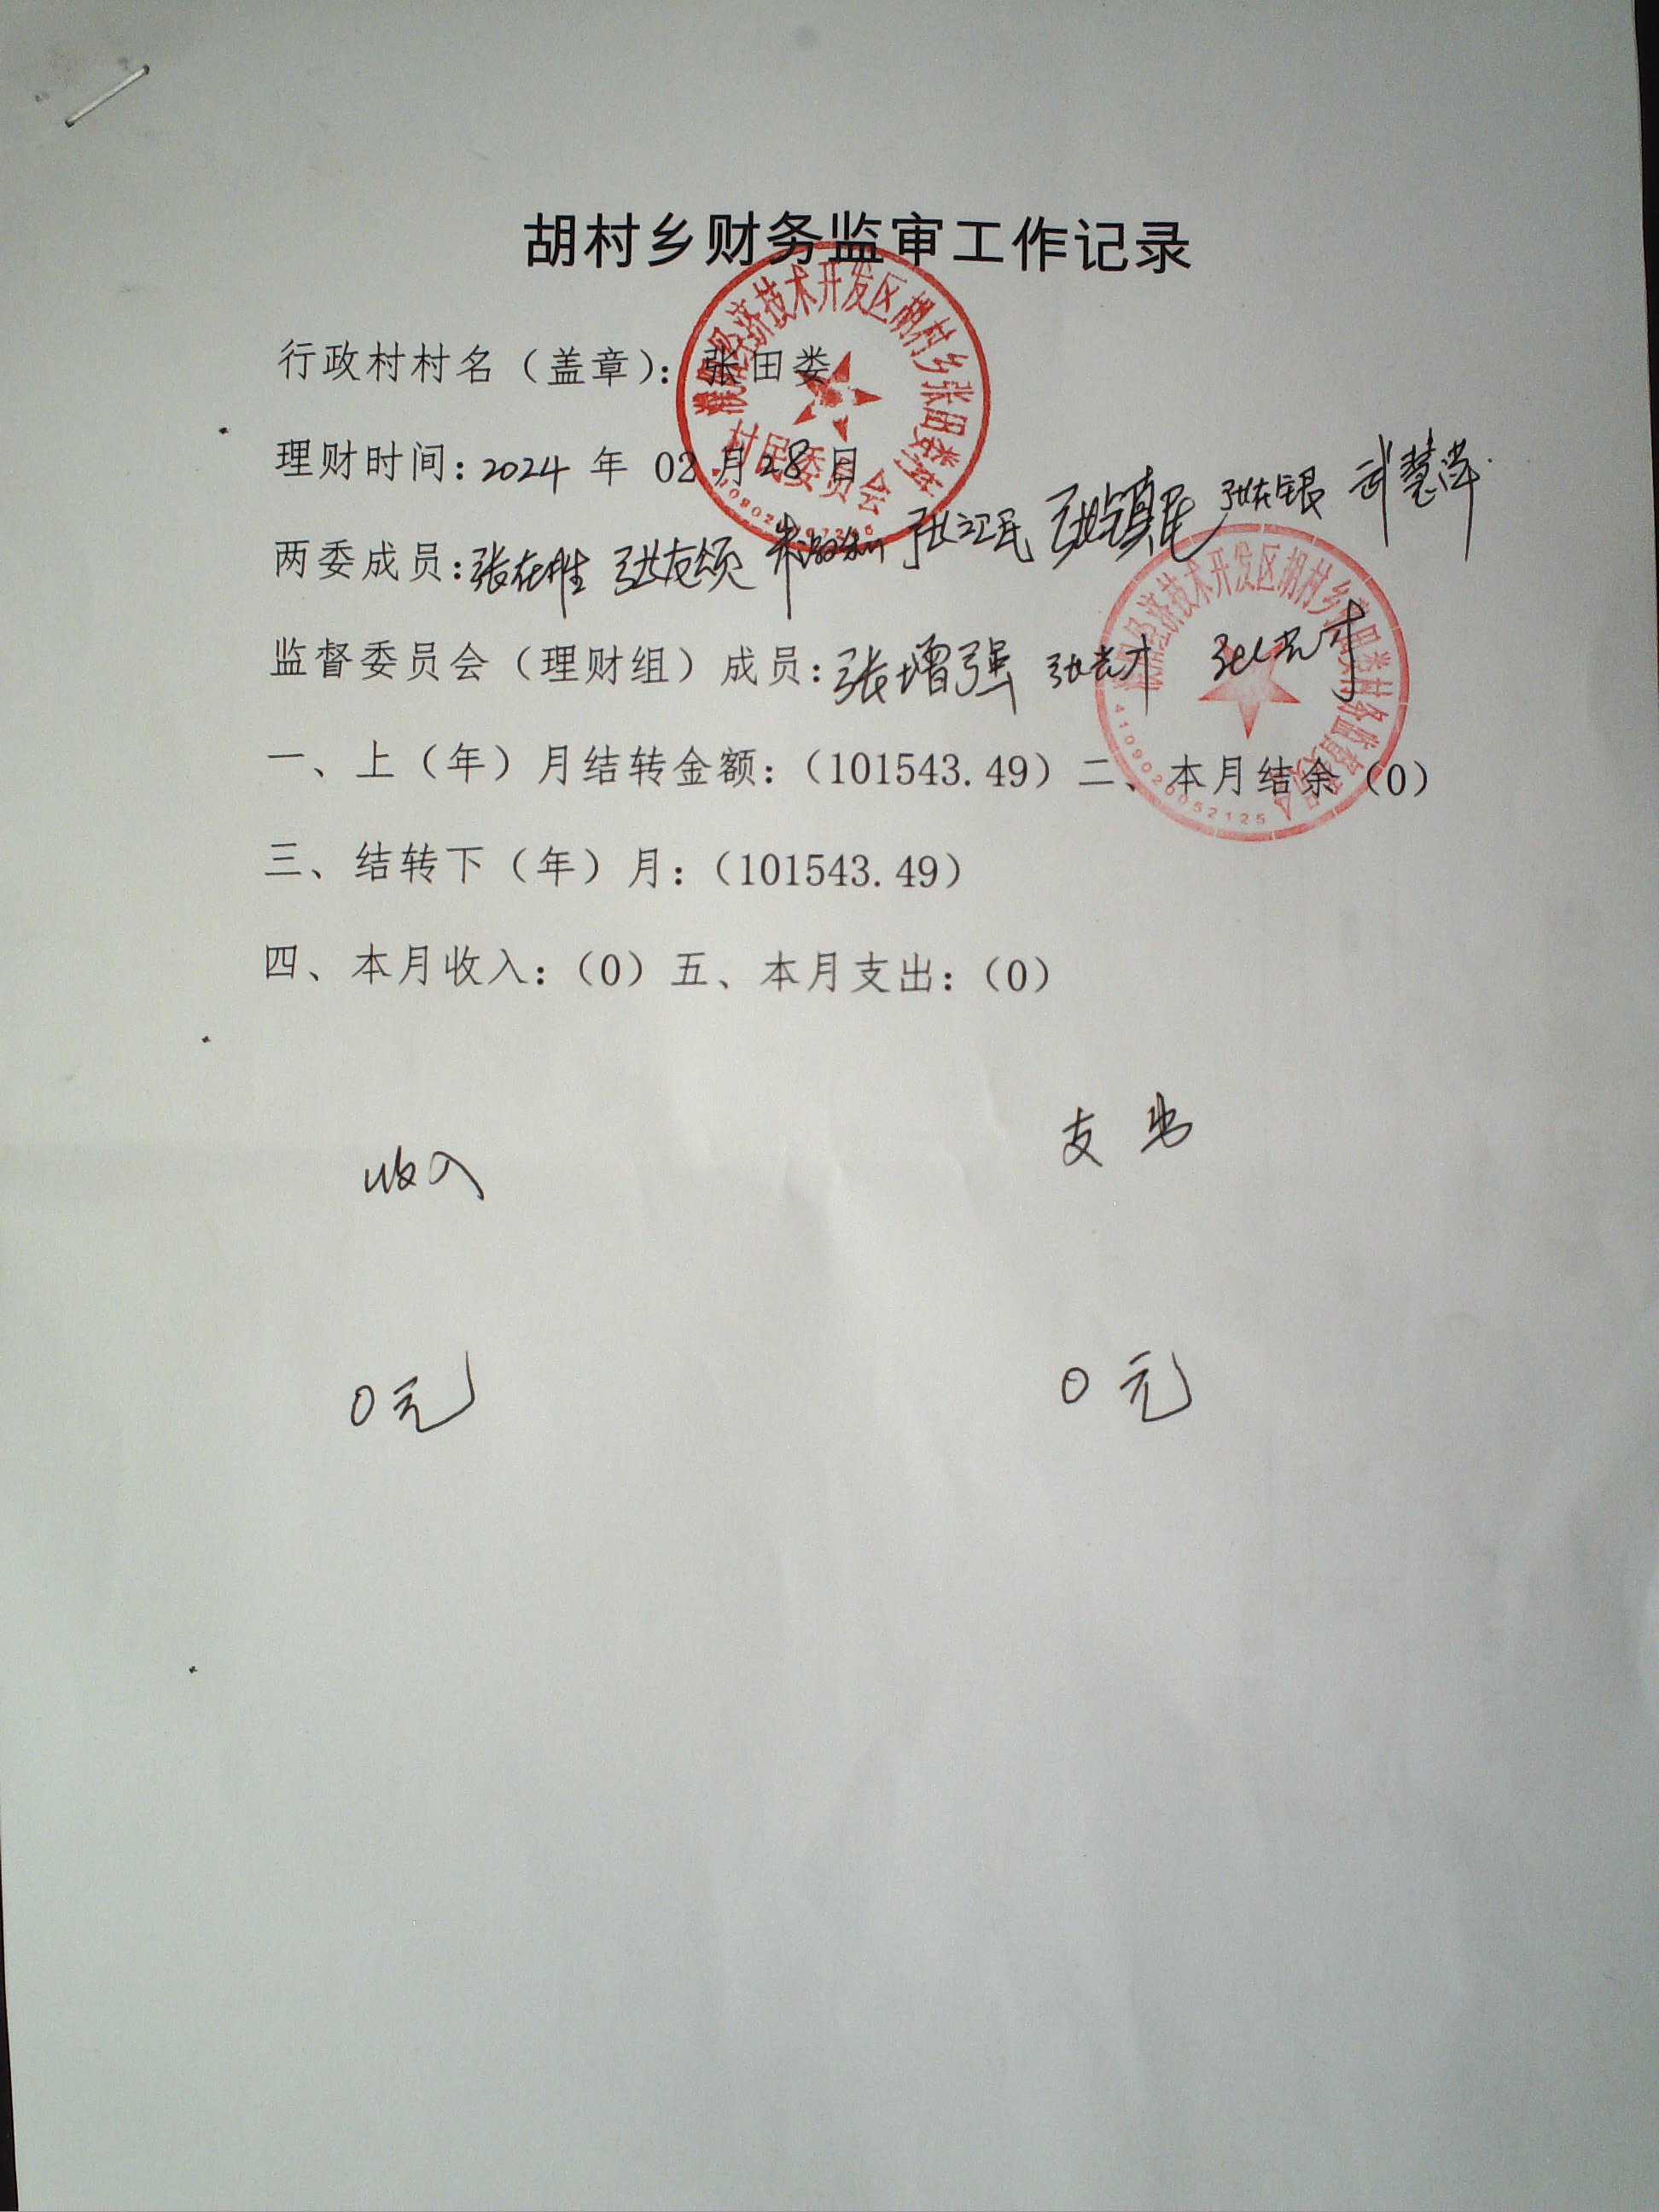 胡村乡财务监审工作记录
行政村村名（盖章）：张田娄
理财时间：2024 年 02 月 28 日
两委成员：张在胜 张友颂 张江民 张镇民 张在银 武慧萍
监督委员会（理财组）成员：张增强
一、上（年）月结转金额：（101543.49）二、本月结余（0）
三、结转下（年）月：（101543.49）
四、本月收入：（0）五、本月支出：（0）
收入 支出
0元 0元
经济技术开发区胡村乡张田娄村
村民委员会
经济技术开发区胡村乡张田娄村务监督委员会
4109020052125